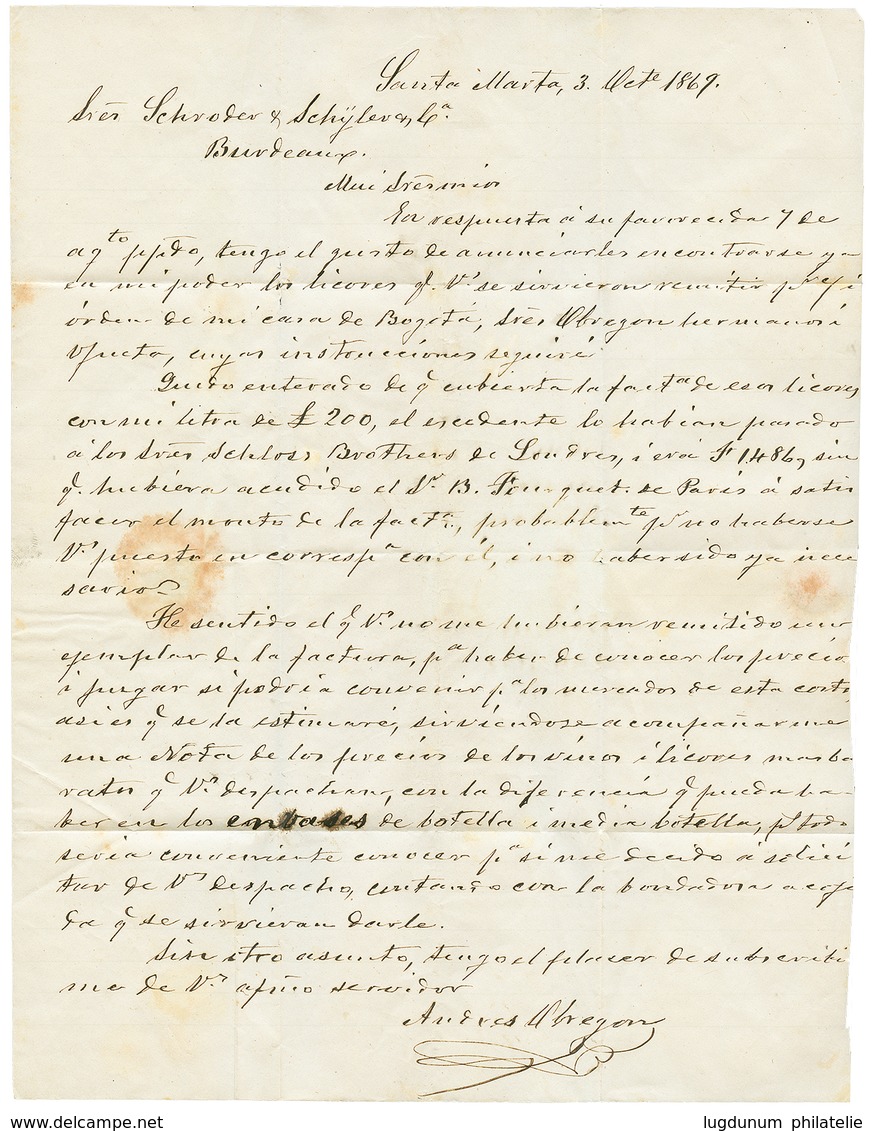 Santa Marta, 3. Octe 1869.
Srēs Schroder & Schÿler y Ca.
Burdeaux.
Mui Srēs mios
En respuesta á su favorecida 7 de
agto ppdo, tengo el gusto de anunciarles encontrarse ya
en mi poder los licores q. Vs se sirvieron remitir pr
órden de mi casa de Bogotá, Srēs Obregon hermanos i
cuyas instrucciones seguiré
Quedo enterado de q̄ cubierta la facta de esos licores
con mi letra de £ 200, el escedente lo habian pasado
á los Srēs Schloss Brothers de Londres, i era F 1.486, sin
q̄. hubiera acudido el Sr. B. Fourquet. de Paris á satis
facer el monto de la facta., probablemte pr no haberse
Vs puesto en correspa con él, i no haber sido ya nece
sario.
He sentido el q̄ Vs no me hubieran remitido un
ejemplar de la factura, pa haber de conocer los precios
i juzgar si podria convenir pa los mercados de esta costa,
asi es q̄ se la estimaré, sirviéndose acompañarme
una Nota de los precios de los vinos i licores mas ba
ratos q̄ Vs despachan, con la diferencia q̄ pueda ha-
ber en los embases de botella i media botella, ps todo
seria conveniente conocer pa si me decido á solici
tar de Vs despacho, contando con la bondadosa acoji
da q̄ se sirvieran darle.
Sin otro asunto, tengo el placer de subscribir
me de Vs afmo servidor
Andres Obregon
www.delcampe.net
lugdunum philatelie